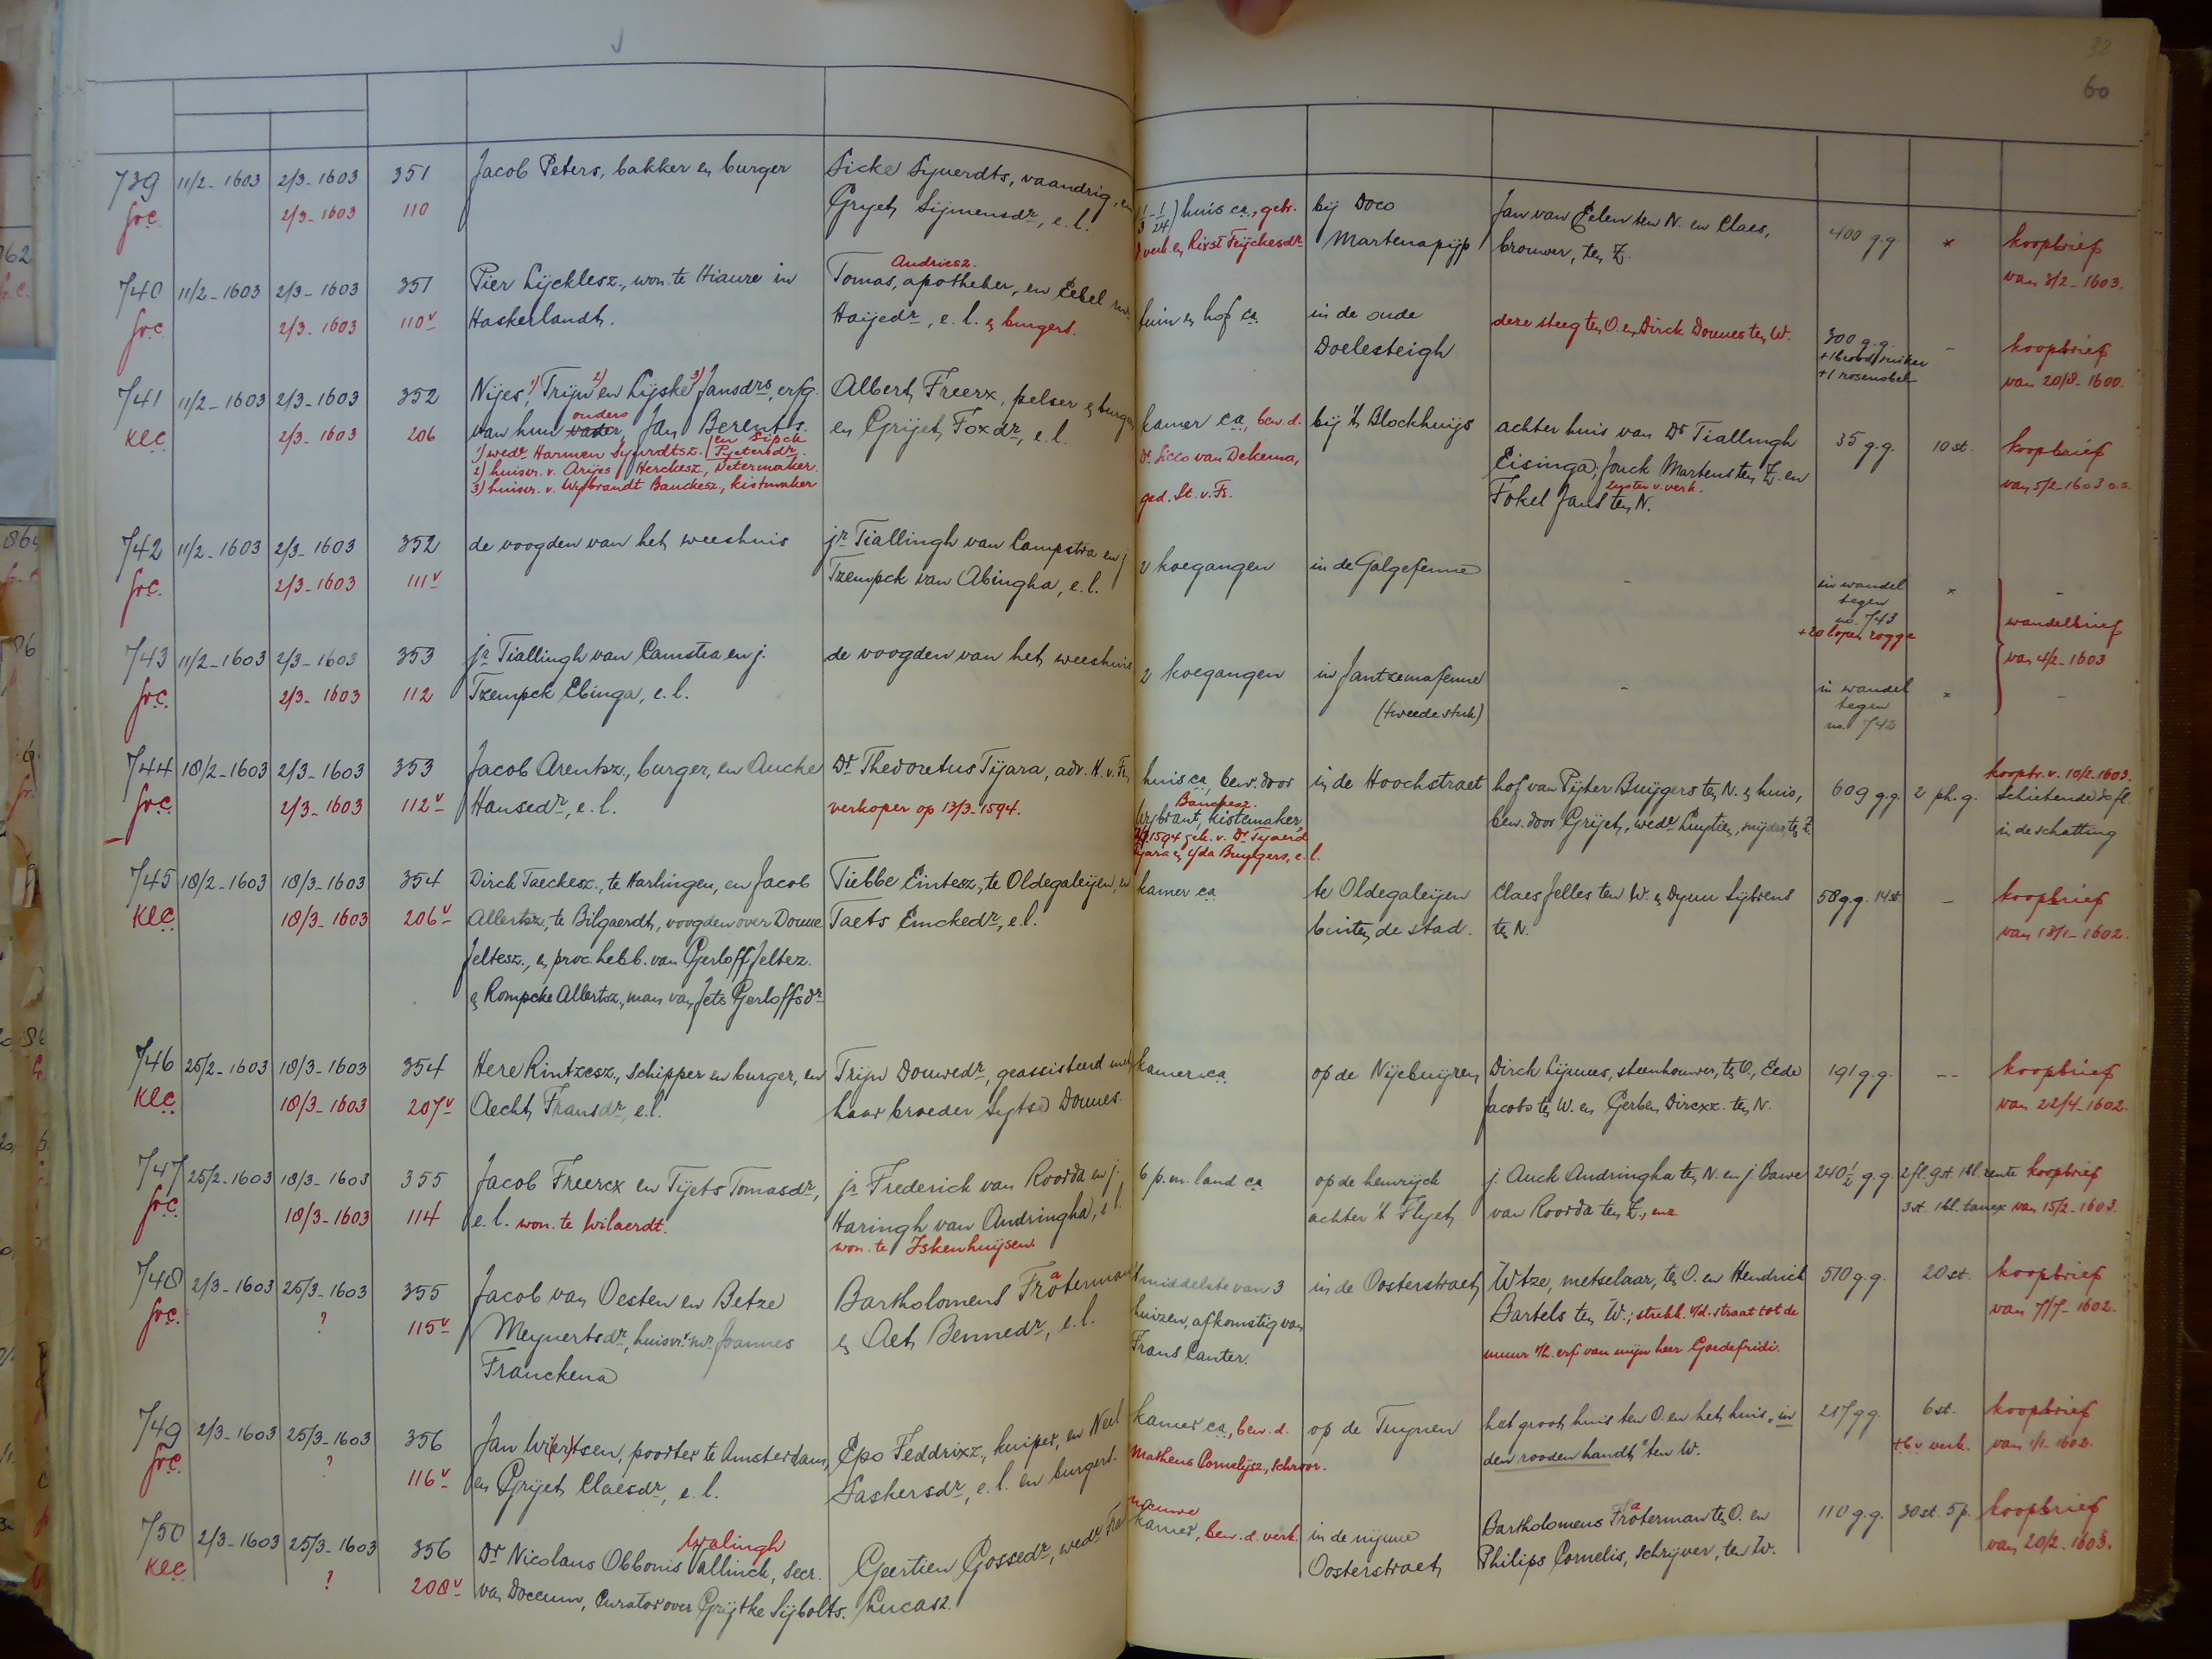 32
60
739 11/2-1603 2/3-1603 351 Jacob Peters, bakker en burger Sicke Sjuerdts, vaandrig, en (1/3-1/24) huis ca., gebr. bij Doco Jan van Eelen ten N. en Claes, 400 g.g. x koopbrief
fr.c. 2/3-1603 110 Gryet Sijmensdr, e.l. verk. en Rixst Feyckesdr Martenapijp brouwer, ten Z. van 3/2-1603.
740 11/2-1603 2/3-1603 351 Pier Lijcklesz., won. te Hiaure in Tomas Andriesz., apotheker, en Eebel tuin en hof ca. in de oude deze steeg ten O. en Dirck Douwes ten W. 300 g.g. - koopbrief
fr.c. 2/3-1603 110v Haskerlandt. Haijedr, e.l. en burgers. Doelesteigh +1 rosenobel van 20/8-1600.
741 11/2-1603 2/3-1603 352 Nijes 1), Trijn 2) en Lijske 3) Jansdrs, erfg. Albert Freerx, pelser en burger kamer ca., bew. d. bij 't Blockhuijs achter huis van Dr Tiallingh 35 g.g. 10 st. koopbrief
KLC 2/3-1603 206 van hun vader ouders, Jan Berents. en Grijet Foxdr, e.l. Dr. Sicco van Dekema, Eisinga; Jouck Martens ten Z. en van 5/2-1603 o.s.
en Sipck Pietersdr.
1) wedr Harmen Sjuerdtsz.
2) huisvr. v. Arijes Herckesz., Vetermaker. ged. St. v. Fr. zuster v. verk.
3) huisvr. v. Wijbrandt Bauckesz., kistmaker Fokel Jans ten N.
742 11/2-1603 2/3-1603 352 de voogden van het weeshuis jr Tiallingh van Campstra en j. 2 koegangen in de Galgefenne - in wandel x -
fr.c. 2/3-1603 111v Tzempck van Abingha, e.l. tegen
no. 743 wandelbrief
+20 lopen rogge
743 11/2-1603 2/3-1603 353 jr Tiallingh van Camstra en j. de voogden van het weeshuis 2 koegangen in Jantzemafenne - in wandel x van 4/2-1603
fr.c. 2/3-1603 112 Tzempck Ebinga, e.l. (tweede stuk) tegen -
no. 742
744 18/2-1603 2/3-1603 353 Jacob Arentsz., burger, en Aucke Dr Thedoretus Tijara, adv. H. v. Fr. huis ca, bew. door in de Hoochstraet hof van Pijter Buijgers ten N. en huis, 609 g.g. 2 ph. g. koopbr. v. 10/2-1603.
fr.c. 2/3-1603 112v Hansedr, e.l. verkoper op 13/3-1594. Wijbrant Bauckesz., kistemaker bew. door Grijet, wedr Luytien, snijder, ten Z. schietende do fl.
1594 gek. v. Dr Tjaerd in de schatting
Tijara en Yda Buygers, e.l.
745 18/2-1603 18/3-1603 354 Dirck Taeckesz., te Harlingen, en Jacob Tiebbe Eintesz., te Oldegaleijen, en kamer ca te Oldegaleijen Claes Jelles ten W. en Dyun Sybrens 58 g.g. 14 st - koopbrief
KLC 18/3-1603 206v Allertsz, te Bilgaerdt, voogden over Douwe Taets Emckedr, e.l. buiten de stad. ten N. van 18/1-1602.
Jeltesz., en proc. hebb. van Gerloff Jeltez.
en Rompcke Allertsz., man van Jets Gerloffsdr
746 25/2-1603 18/3-1603 354 Here Rintzesz., schipper en burger, en Trijn Douwedr, geassisteerd met kamer ca op de Nijebuijren Dirck Lijuwes, steenhouwer, ten O., Eede 191 g.g. -- koopbrief
KLC 18/3-1603 207v Aecht Fransdr, e.l. haar broeder Sytse Douwes. Jacobs ten W. en Gerben Dircxz. ten N. van 22/4-1602.
747 25/2-1603 18/3-1603 355 Jacob Freercx en Tijets Tomasdr, jr Frederick van Roorda en j. 6 p.m. land ca op de hemrijck j. Auck Andringha ten N. en j. Bawe 240½ g.g. 2 fl. 9 st. 1 bl. rente koopbrief
fr.c. 18/3-1603 114 e.l. won. te Wilaerdt. Haringh van Andringha, e.l. achter 't Flyet van Roorda ten Z., enz 3 st. 1 bl. taux van 15/2-1603.
won. te Iskenhuijsen.
748 2/3-1603 25/3-1603 355 Jacob van Oesten en Betze Bartholomeus Fraterman 't middelste van 3 in de Oosterstraet Wtze, metselaar, ten O. en Hendrick 510 g.g. 20 st. koopbrief
fr.c. ? 115v Meynertsdr, huisvr. mr Joannes en Aet Bennedr, e.l. huizen, afkomstig van Bartels ten W.; strekk. v/d. straat tot de van 7/7-1602.
Franckena Frans Canter. muur v/h. erf van mijn heer Goedefridi.
749 2/3-1603 25/3-1603 356 Jan Wi(er)tsen, poorter te Amsterdam, Epo Feddrixz, kuiper, en Neel kamer ca., bew. d. op de Tuynen het groot huis ten O. en het huis „in 217 g.g. 6 st. koopbrief
fr.c. ? 116v en Grijet Claesdr, e.l. Saskersdr, e.l. en burgers. Matheus Cornelijsz., schroor. den rooden handt" ten W. +6 v. verk. van 1/1-1602.
750 2/3-1603 25/3-1603 356 Dr Nicolaus Obbonis Wallinck Walingh, secr. Geertien Gossedr, wedr nieuwe kamer, bew. d. verk. in de nijuwe Bartholomeus Fraterman ten O. en 110 g.g. 30 st. 5 p. koopbrief
KLC ? 208v van Doccum, Curator over Grijtke Sijbolts. Lucasz. Oosterstraet Philips Cornelis, schrijver, ten W. van 20/2-1603.